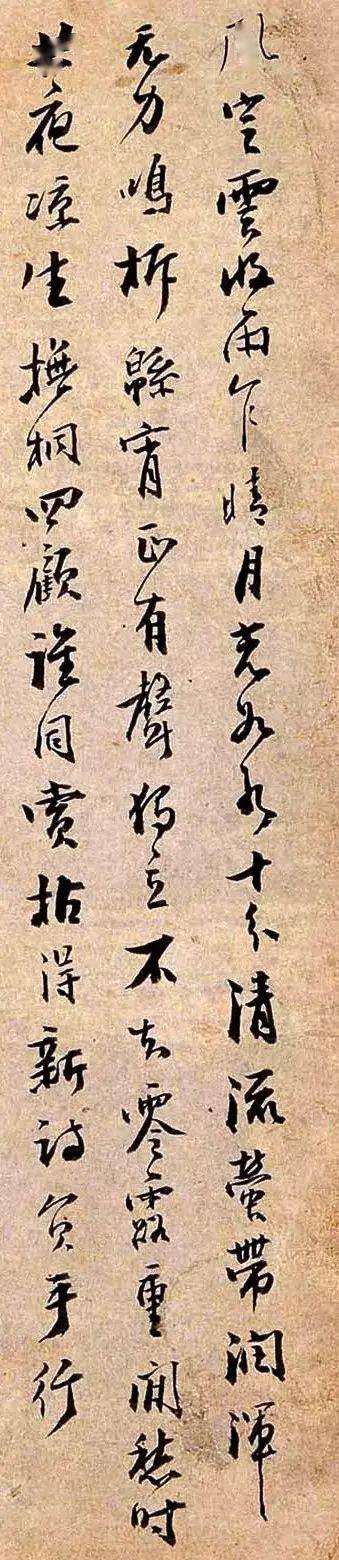 风定雲收雨乍晴月光如水十分清流螢帶潤渾
无力鳴柝緜宵正有聲獨立不知零露重閒愁时
共夜凉生撫桐四顧誰同賞拈得新詩負手行